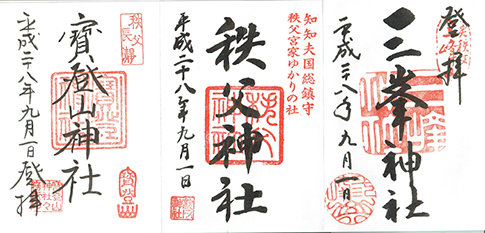 登拝
三峯神社
平成二十八年九月一日
知知夫国総鎮守
秩父宮家ゆかりの社
秩父神社
平成二十八年九月一日
秩父
長瀞
寳登山神社
平成二十八年九月一日登拝